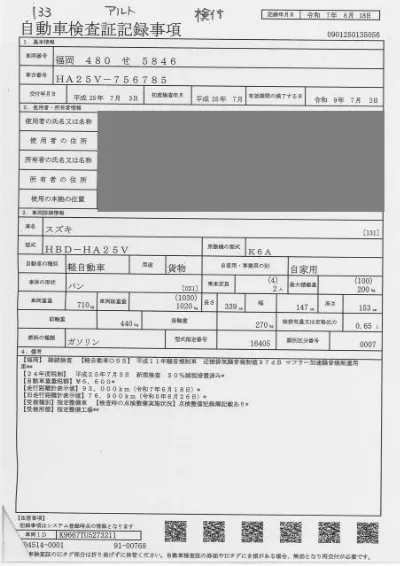 133 アルト 検付
記録年月日 令和 7年 6月 18日
自動車検査証記録事項 0901250135056
1. 基本情報
車両番号 福岡 480 せ 5846
車台番号 HA25V-756785
交付年月日 平成 25年 7月 3日 初度検査年月 平成 25年 7月 有効期間の満了する日 令和 9年 7月 2日
2. 使用者・所有者情報
使用者の氏名又は名称
使用者の住所
所有者の氏名又は名称
所有者の住所
使用の本拠の位置
3. 車両詳細情報
車名 スズキ [131]
型式 HBD-HA25V 原動機の型式 K6A
自動車の種別 軽自動車 用途 貨物 自家用・事業用の別 自家用
車体の形状 バン [021] 乗車定員 (4) 2人 最大積載量 (100) 200kg
車両重量 710kg 車両総重量 (1030) 1020kg 長さ 339cm 幅 147cm 高さ 153cm
前軸重 440kg 後軸重 270kg 総排気量又は定格出力 0.65 L
燃料の種類 ガソリン 型式指定番号 16405 類別区分番号 0007
4. 備考
【福岡】 継続検査 【軽自動車OSS】 平成11年騒音規制車 近接排気騒音規制値97dB マフラー加速騒音規制適用
車**
【24年度税制】 平成25年7月3日 新規検査 50%減税措置済み*
【自動車重量税額】 ¥6,600*
【走行距離計表示値】 93,000km(令和7年6月18日)*
【旧走行距離計表示値】 76,900km(令和5年6月26日)*
【受検種別】指定整備車 【検査時の点検整備実施状況】点検整備記録簿記載あり*
【受検形態】指定整備工場**
【注意事項】
記録事項はシステム登録時点の情報となります
車両ID K9667TU527321
04514-0001 91-00768
車検査証のICタグ部分は折り曲げずに保管ください。自動車検査証の券面やICタグにき損がある場合、無効となり再交付が必要です。